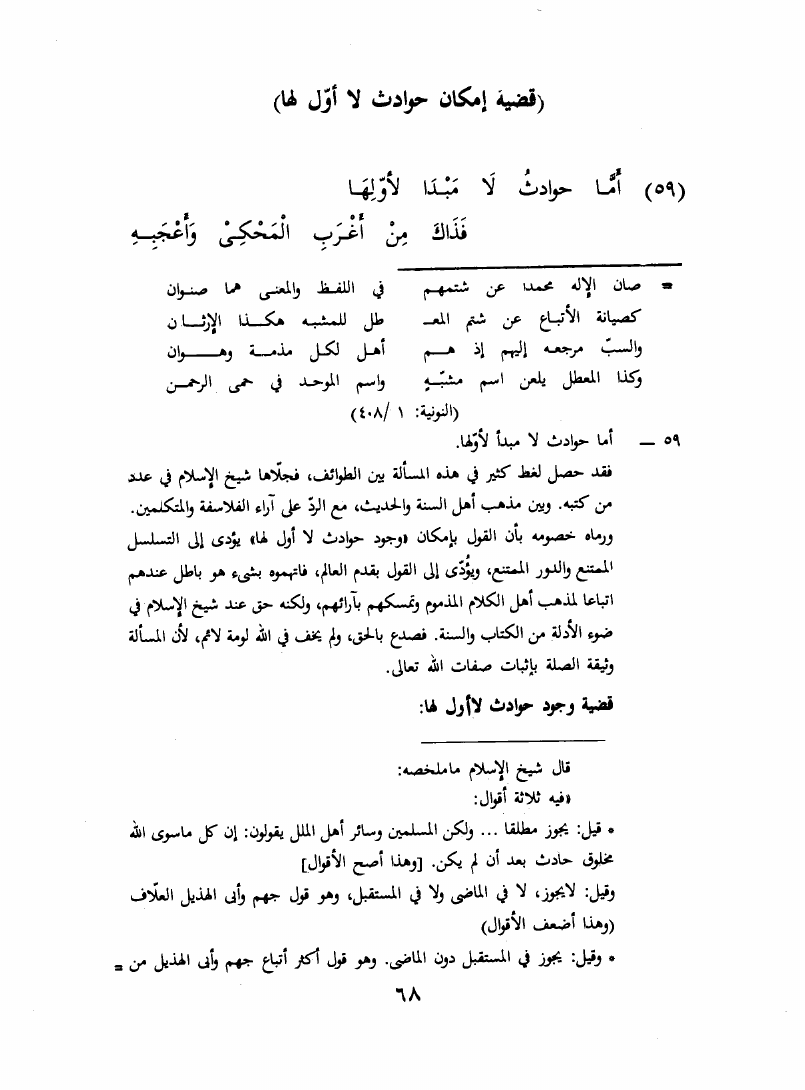 (قضية إمكان حوادث لا أوّل لها)
(٥٩) أَمَّا حوادثُ لَا مَبْدَا لأوّلِهَا
فَذَاكَ مِنْ أَغْرَبِ الْمَحْكِىْ وَأَعْجَبِهِ
= صان الإله محمدا عن شتمهم في اللفظ والمعنى هما صنوان
كصيانة الأتباع عن شتم المعـ طل للمشبه هكذا الإرثان
والسبّ مرجعه إليهم إذ هم أهل لكل مذمة وهوان
وكذا المعطل يلعن اسم مشبّه واسم الموحد في حمى الرحمن
(النونية: ١ /٤٠٨)
٥٩ — أما حوادث لا مبدأ لأوّلها.
فقد حصل لغط كثير في هذه المسألة بين الطوائف، فجلّاها شيخ الإسلام في عدد
من كتبه. وبين مذهب أهل السنة والحديث، مع الردّ على آراء الفلاسفة والمتكلمين.
ورماه خصومه بأن القول بإمكان «وجود حوادث لا أول لها» يؤدى إلى التسلسل
الممتنع والدور الممتنع، ويؤدّى إلى القول بقدم العالم، فاتهموه بشىء هو باطل عندهم
اتباعا لمذهب أهل الكلام المذموم وتمسكهم بآرائهم، ولكنه حق عند شيخ الإسلام في
ضوء الأدلة من الكتاب والسنة. فصدع بالحق، ولم يخف في الله لومة لائم، لأن المسألة
وثيقة الصلة بإثبات صفات الله تعالى.
قضية وجود حوادث لاأول لها:
قال شيخ الإسلام ماملخصه:
«فيه ثلاثة أقوال:
* قيل: يجوز مطلقا ... ولكن المسلمين وسائر أهل الملل يقولون: إن كل ماسوى الله
مخلوق حادث بعد أن لم يكن. [وهذا أصح الأقوال]
وقيل: لايجوز، لا في الماضى ولا في المستقبل، وهو قول جهم وأبى الهذيل العلّاف
(وهذا أضعف الأقوال)
* وقيل: يجوز في المستقبل دون الماضى. وهو قول أكثر أتباع جهم وأبى الهذيل من =
٦٨